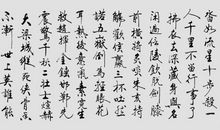 沓如流星十步殺一
人千里不留行事了
拂衣去深藏身與名
閑過信陵飲脫劍膝
前橫將炙啖朱亥持
觴勸侯嬴三杯吐然
諾五嶽倒為輕眼花
耳熱後意氣素霓生
救趙揮金鎚邯鄲先
震驚千秋二壯士煊赫
大梁城縱死俠骨香
不慚世上英誰能